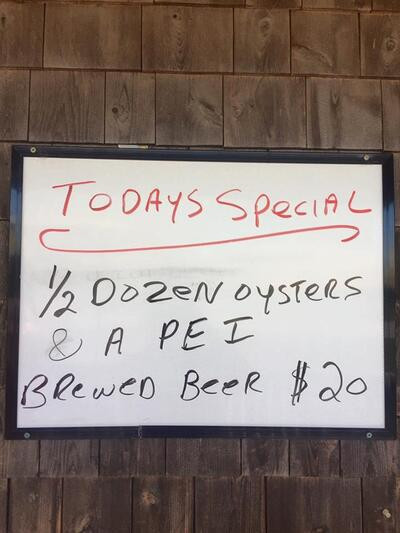 TODAYS SPECIAL
1/2 DOZEN OYSTERS
& A PEI
BREWED BEER $20